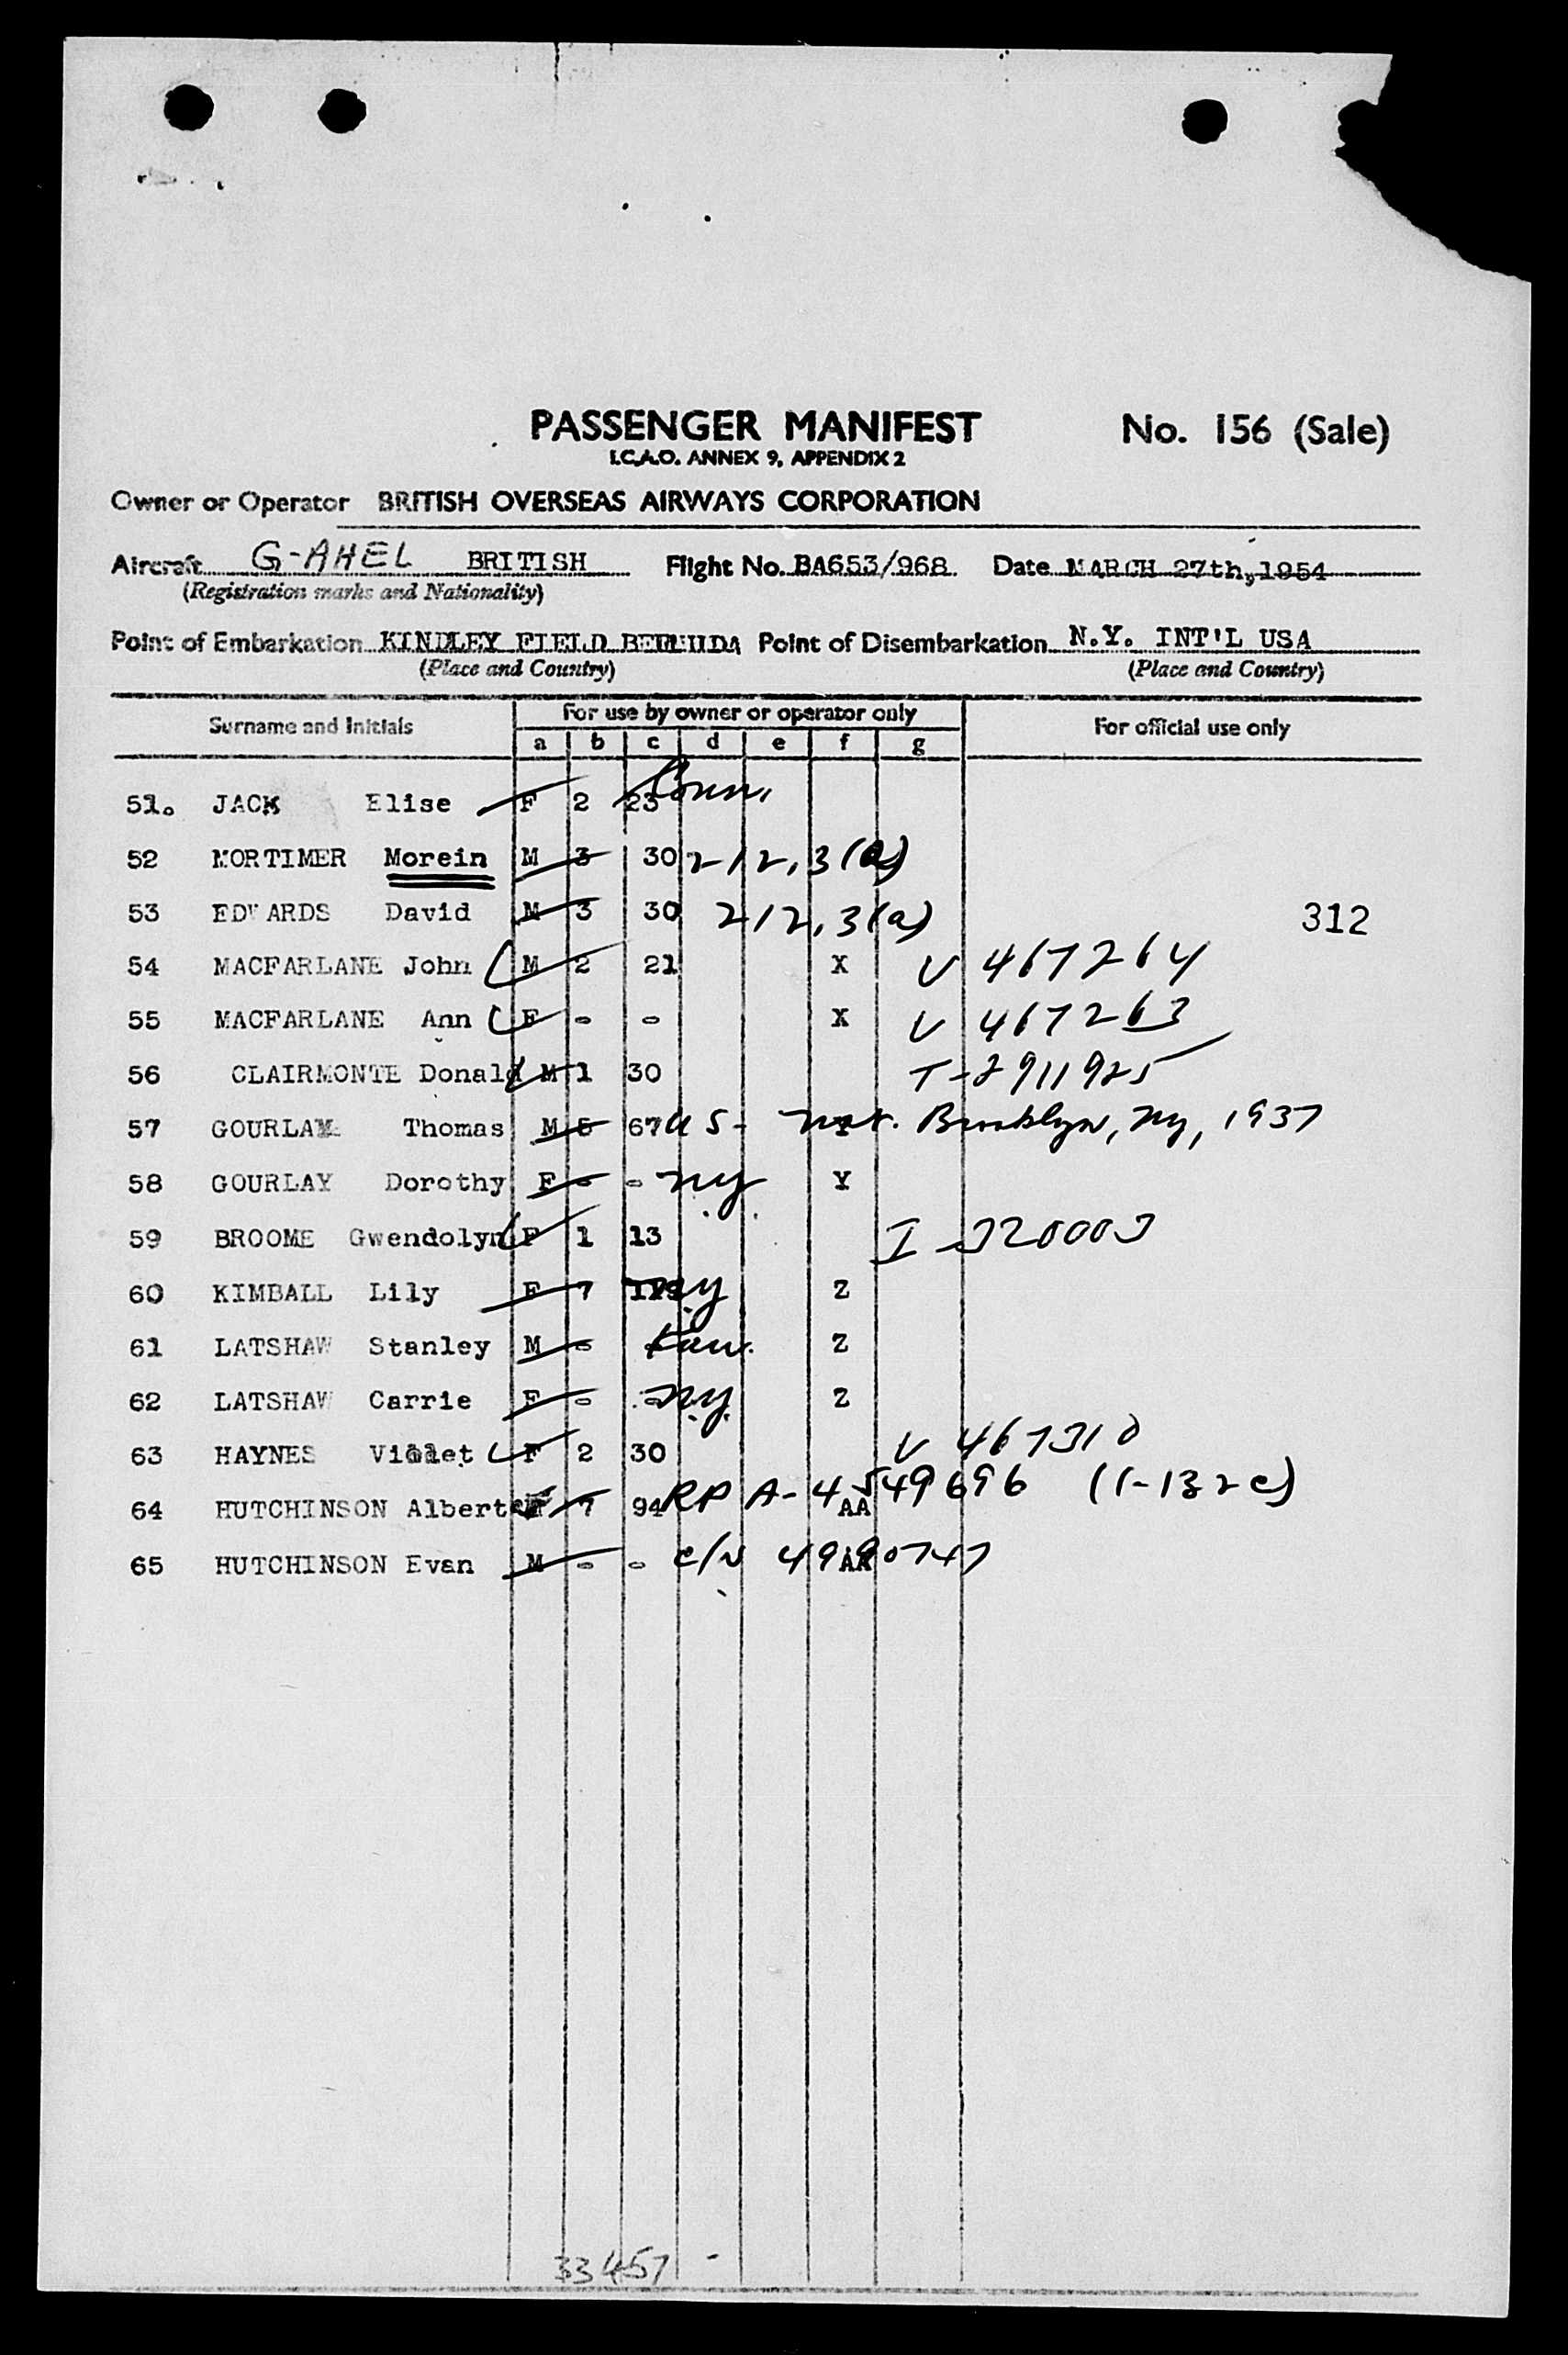 PASSENGER MANIFEST No. 156 (Sale)
I.C.A.O. ANNEX 9, APPENDIX 2
Owner or Operator BRITISH OVERSEAS AIRWAYS CORPORATION
Aircraft G-AHEL BRITISH Flight No. BA653/968 Date MARCH 27th, 1954
(Registration marks and Nationality)
Point of Embarkation KINDLEY FIELD BERMUDA Point of Disembarkation N.Y. INT'L USA
(Place and Country) (Place and Country)
Surname and Initials For use by owner or operator only For official use only
a b c d e f g
51. JACK Elise F 2 23 Conn.
52 MORTIMER Morein M 3 30 212.3(a)
53 EDWARDS David M 3 30 212.3(a)
312
54 MACFARLANE John M 2 21 X V 467264
55 MACFARLANE Ann F - - X V 467263
56 CLAIRMONTE Donald M 1 30 T-2911925
57 GOURLAY Thomas M 5 67 US- nat. Brooklyn, Ny, 1937
58 GOURLAY Dorothy F - - ny Y
59 BROOME Gwendolyn F 1 13 I-320003
60 KIMBALL Lily F 7 ny Z
61 LATSHAW Stanley M - Kan. Z
62 LATSHAW Carrie F - - ny. Z
63 HAYNES Violet F 2 30 V 467310
64 HUTCHINSON Albert 7 94 RP A-4549696 AA (1-132e)
65 HUTCHINSON Evan M - - c/N 4990747 AA
33457 -